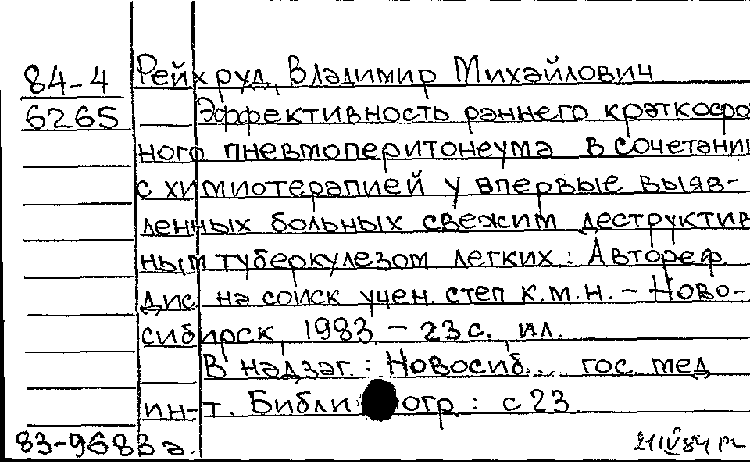 84-4 Рейхруд, Владимир Михайлович
6265 Эффективность раннего краткосро
ного пневмоперитонеума в сочетании
с химиотерапией у впервые выяв-
ленных больных свежим деструктив
ным туберкулезом легких: Автореф
дис на соиск учен. степ к.м.н. - Ново-
сибирск, 1983 - 23 с. ил.
В надзаг.: Новосиб. гос. мед
ин-т. Библиогр: с 23
83-9683а.